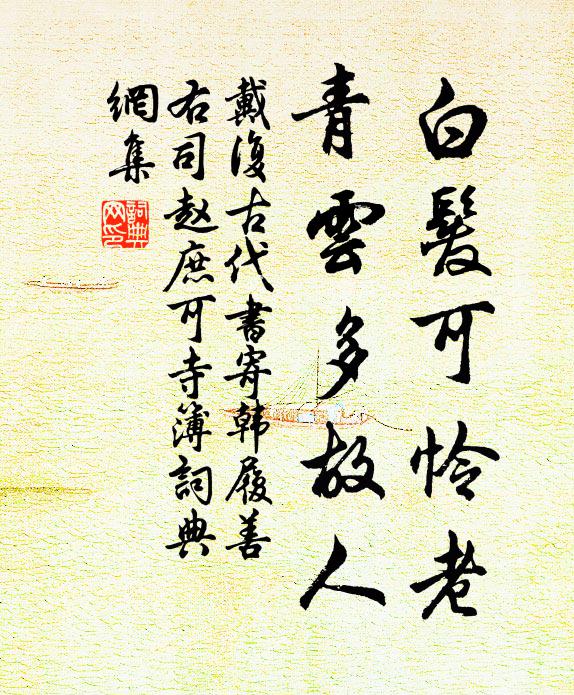 白髮可怜老
青雲多故人
戴復古代書寄韩履善
右司赵庶可寺簿詞典
網集
詞典網印